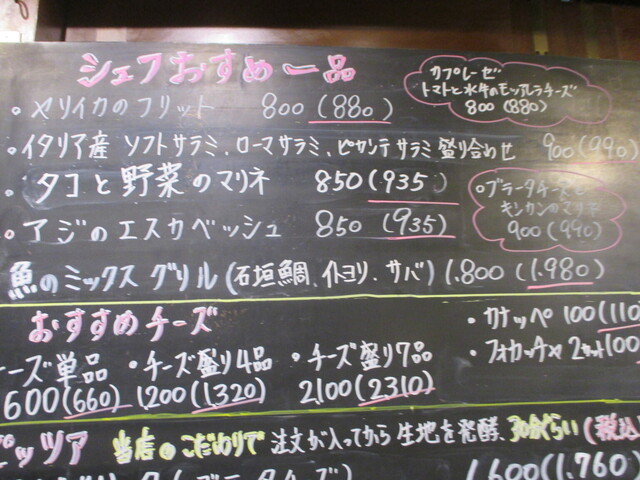 シェフおすすめ一品
カプレーゼ
トマトと水牛のモッツァレラチーズ
800(880)
・ヤリイカのフリット 800(880)
・イタリア産 ソフトサラミ、ローマサラミ、ピカンテサラミ盛り合わせ 900(990)
・タコと野菜のマリネ 850(935)
・ブラータチーズと
キンカンのマリネ
900(990)
・アジのエスカベッシュ 850(935)
魚のミックスグリル(石垣鯛、イトヨリ、サバ) 1.800(1.980)
おすすめチーズ
・カナッペ 100(110
・フォカッチャ 2カット100
ーズ単品
600(660)
・チーズ盛り4品
1,200(1320)
・チーズ盛り7品
2,100(2310)
ピッツア 当店のこだわりで 注文が入ってから生地を発酵、30分くらい(税込
1,600(1.760)